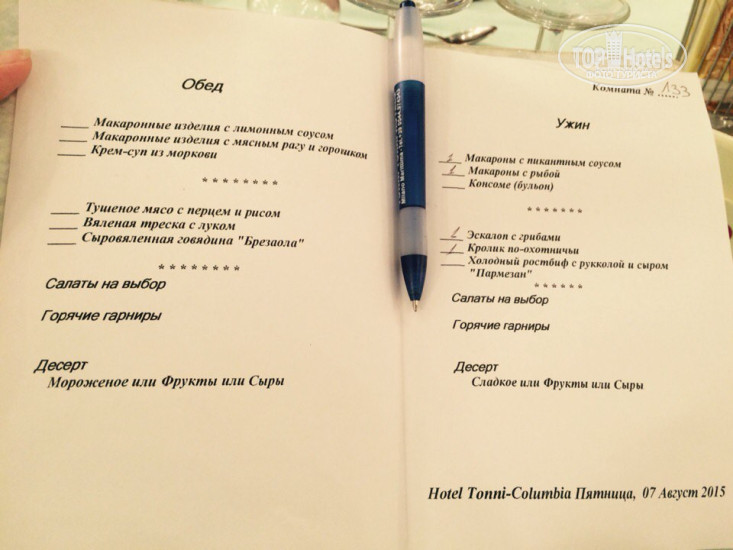 TOP Hotels
ФОТО ТУРИСТА
Обед
____ Макаронные изделия с лимонным соусом
____ Макаронные изделия с мясным рагу и горошком
____ Крем-суп из моркови
* * * * * * * *
____ Тушеное мясо с перцем и рисом
____ Вяленая треска с луком
____ Сыровяленная говядина "Брезаола"
* * * * * * * *
Салаты на выбор
Горячие гарниры
Десерт
Мороженое или Фрукты или Сыры
Комната № 133
Ужин
1 Макароны с пикантным соусом
1 Макароны с рыбой
____ Консоме (бульон)
* * * * * * *
1 Эскалоп с грибами
1 Кролик по-охотничьи
____ Холодный ростбиф с рукколой и сыром
"Пармезан"
* * * * * *
Салаты на выбор
Горячие гарниры
Десерт
Сладкое или Фрукты или Сыры
Hotel Tonni-Columbia Пятница, 07 Август 2015
Milano Marittima